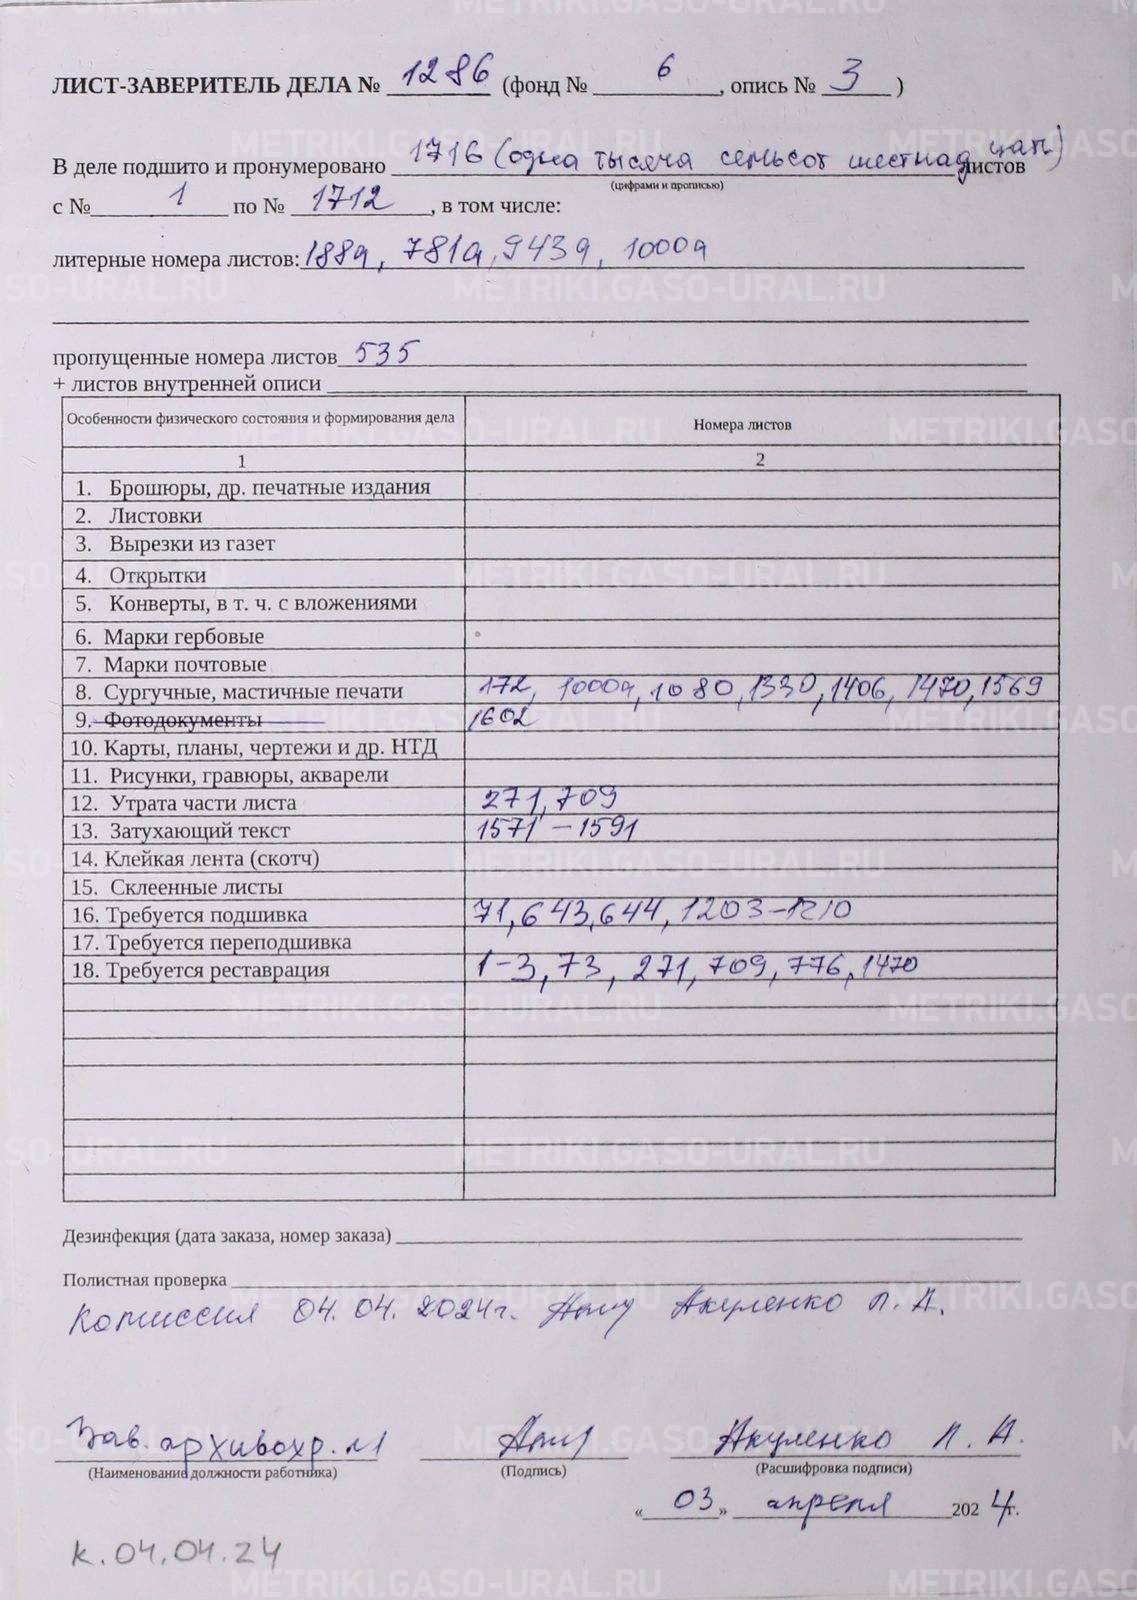 ЛИСТ-ЗАВЕРИТЕЛЬ ДЕЛА № 1286 (фонд № 6, опись № 3)
В деле подшито и пронумеровано 1716 (одна тысяча семьсот шестнадцат) листов
(цифрами и прописью)
с № 1 по № 1712, в том числе:
литерные номера листов: 188а, 781а, 943а, 1000а
пропущенные номера листов 535
+ листов внутренней описи
Особенности физического состояния и формирования дела Номера листов
1 2
1. Брошюры, др. печатные издания
2. Листовки
3. Вырезки из газет
4. Открытки
5. Конверты, в т. ч. с вложениями
6. Марки гербовые
7. Марки почтовые
8. Сургучные, мастичные печати 172, 1000а, 1080, 1330, 1406, 1470, 1569
9. Фотодокументы 1602
10. Карты, планы, чертежи и др. НТД
11. Рисунки, гравюры, акварели
12. Утрата части листа 271, 709
13. Затухающий текст 1571 – 1591
14. Клейкая лента (скотч)
15. Склеенные листы
16. Требуется подшивка 71, 643, 644, 1203–1210
17. Требуется переподшивка
18. Требуется реставрация 1–3, 73, 271, 709, 776, 1470
Дезинфекция (дата заказа, номер заказа)
Полистная проверка
Комиссия 04.04.2024г. Акуленко Л.А.
Зав. архивохр. №1 Акуленко Л.А.
(Наименование должности работника) (Подпись) (Расшифровка подписи)
« 03 » апреля 2024 г.
к. 04.04.24
METRIKI.GASO-URAL.RU